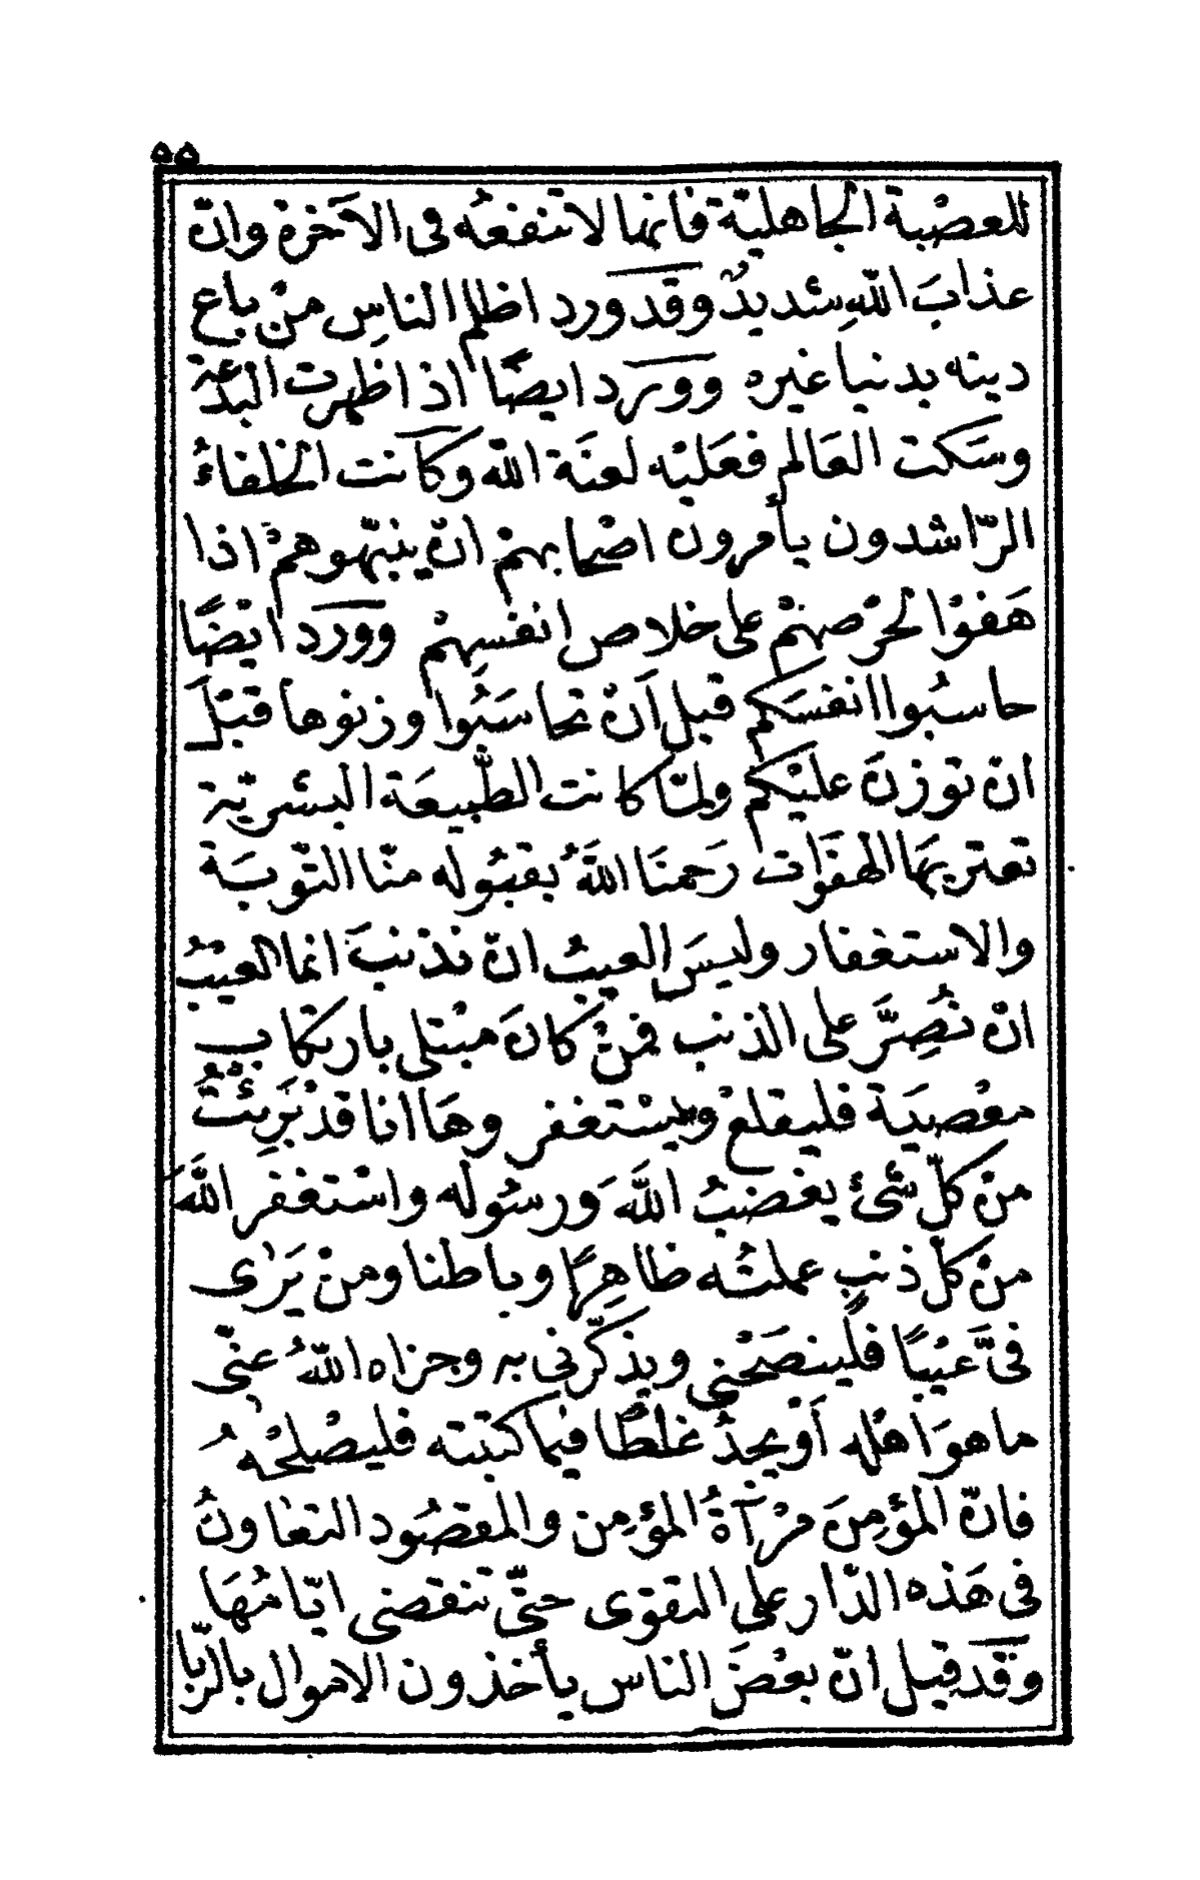 ٥٥
للعصْبية الجاهليّة فانها لا تنفعُه فى الآخرة وانّ
عذابَ اللّهِ شديدٌ وقد ورد اظلم الناسِ منْ باع
دينه بدنيا غيره وورد ايضًا اذا ظهرت البدعة
وسَكت العَالم فعَليْه لعنَة اللّه وكَانت الخلفاءُ
الرّاشدون يأمرون اصْحابهمْ انْ ينبّهوهمْ اذا
هَفوْا لحرْصهمْ على خلاص انفسِهمْ وورد ايضًا
حاسبُوا انفسَكم قبل اَنْ تحاسَبُوا وزنوها قبْلَ
انْ توزنَ عليْكم ولمّا كانت الطّبيعَة البشريّة
تعتريهَا الهفوَات رَحمنَا اللّهُ بقبُوله منّا التّوبَة
والاستغفار وليسَ العيبُ انْ نذنبَ انما العيْبُ
انْ نُصِرَّ على الذنب فمنْ كانَ مبْتلى بارتكاب
معْصيَة فليقلعْ وليسْتغفر وهَا انا قدْ بَرِئْتُ
منْ كلّ شئ يغضبُ اللّهَ ورسُوله واسْتغفر اللّهَ
منْ كلّ ذنبٍ عملتُه ظاهِرًا وباطنا ومنْ يَرٰى
فىَّ عيْبًا فلينصَحْنى ويذكّرنى به وجزاه اللّهُ عنّى
ما هوَ اهْله أوْ يجدُ غلطًا فيما كتبته فليصْلحْهُ
فانّ المؤمِنَ مرْآةُ المؤمِن والمقصُود التعاونُ
فى هَذه الدّار على التقوى حتّى تنقضى ايّامُهَا
وقد قيل انّ بعْضَ الناس يأخذون الاموال بالرّبا